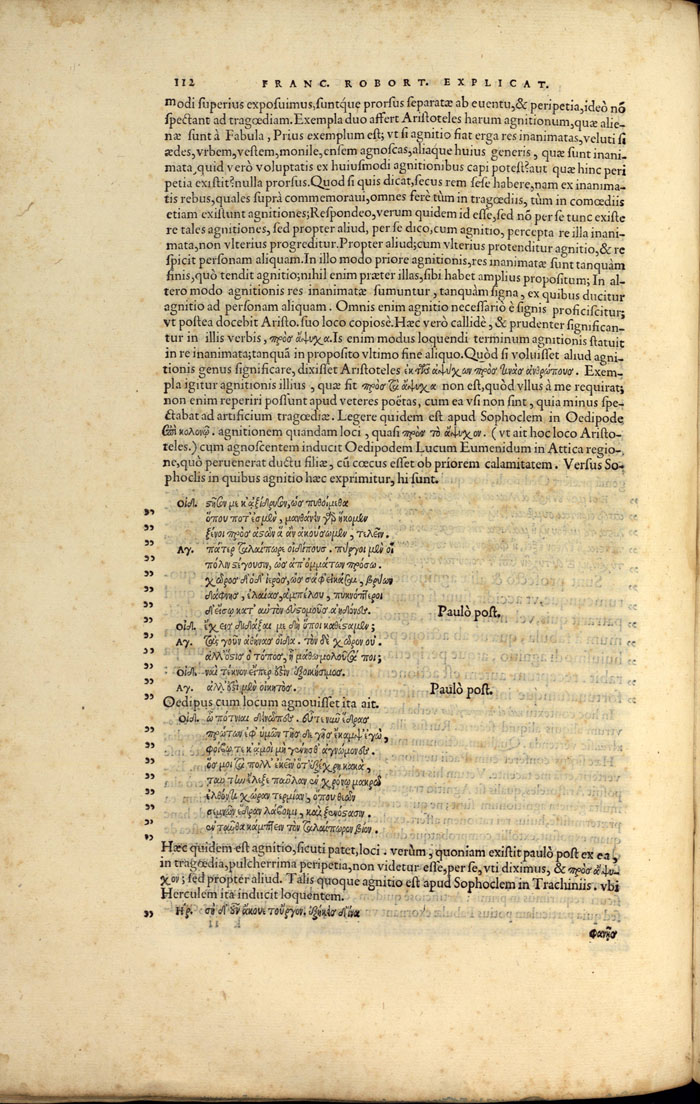 112 FRANC. ROBORT. EXPLICAT.
modi superius exposuimus, suntq́ue prorsus separatæ ab euentu, & peripetia, ideò nō
spectant ad tragœdiam. Exempla duo affert Aristoteles harum agnitionum, quæ alie-
næ sunt à Fabula, Prius exemplum est; vt si agnitio fiat erga res inanimatas, veluti si
ædes, vrbem, vestem, monile, ensem agnoscas, aliaque huius generis, quæ sunt inani-
mata, quid verò voluptatis ex huiusmodi agnitionibus capi potest? aut quæ hinc peri
petia existit? nulla prorsus. Quod si quis dicat, secus rem sese habere, nam ex inanima-
tis rebus, quales suprà commemoraui, omnes ferè tùm in tragœdiis, tùm in comœdiis
etiam existunt agnitiones; Respondeo, verum quidem id esse, sed nō per se tunc existe
re tales agnitiones, sed propter aliud, per se dico, cum agnitio, percepta re illa inani-
mata, non vlterius progreditur. Propter aliud; cum vlterius protenditur agnitio, & re
spicit personam aliquam. In illo modo priore agnitionis, res inanimatæ sunt tanquàm
finis, quò tendit agnitio; nihil enim præter illas, sibi habet amplius propositum; In al-
tero modo agnitionis res inanimatæ sumuntur, tanquàm signa, ex quibus ducitur
agnitio ad personam aliquam. Omnis enim agnitio necessariò è signis proficiscitur;
vt postea docebit Aristo. suo loco copiosè. Hæc verò callidè, & prudenter significan-
tur in illis verbis, πρὸς ἄψυχα. Is enim modus loquendi terminum agnitionis statuit
in re inanimata; tanquā in proposito vltimo fine aliquo. Quòd si voluisset aliud agni-
tionis genus significare, dixisset Aristoteles ἐκ τῶν ἀψύχων πρὸς τινὰς ἀνθρώπους. Exem-
pla igitur agnitionis illius, quæ fit πρὸς τὰ ἄψυχα non est, quòd vllus à me requirat;
non enim reperiri possunt apud veteres poëtas, cum ea vsi non sint, quia minus spe-
ctabat ad artificium tragœdiæ. Legere quidem est apud Sophoclem in Oedipode
ἐπὶ κολονῷ. agnitionem quandam loci, quasi πρὸς τὸ ἄψυχον. (vt ait hoc loco Aristo-
teles.) cum agnoscentem inducit Oedipodem Lucum Eumenidum in Attica regio-
ne, quò peruenerat ductu filiæ, cū cœcus esset ob priorem calamitatem. Versus So-
phoclis in quibus agnitio hæc exprimitur, hi sunt.
Οἰδ. στῆσόν με κἀξίδρυσον, ὡς πυθοίμεθα
ὅπου ποτ' ἐσμὲν, μανθάνειν γὰρ ἥκομεν
ξένοι πρὸς ἀστῶν ἃ ἂν ἀκούσωμεν, τελεῖν.
Αγ. πάτερ ταλαίπωρε οἰδίπους. πύργοι μὲν οἳ
πόλιν στέγουσιν, ὡς ἀπ' ὀμμάτων πρόσω.
χῶρος δ' ὅδ' ἱερὸς, ὡς σάφ' εἰκάσαι, βρύων
δάφνης, ἐλαίας, ἀμπέλου, πυκνόπτεροι
δ' εἴσω κατ' αὐτὸν εὐστομοῦσ' ἀηδόνες. Paulò post.
Οἰδ. ἔχεις διδάξαι με δὴ ὅποι καθέσταμεν;
Αγ. τὰς γοῦν ἀθήνας οἶδα. τὸν δὲ χῶρον οὔ.
ἀλλ' ὅστις ὁ τόπος, ἢ μάθω μολοῦσά ποι;
Οἰδ. ναὶ τέκνον εἴπερ ἐστὶν ἐξοικήσιμος.
Αγ. ἀλλ' ἐστὶ μὲν οἰκητός. Paulò post.
Oedipus cum locum agnouisset ita ait.
Οἰδ. ὦ πότνιαι δεινῶπες. εὖτε νῦν ἕδρας
πρώτων ἐφ' ὑμῶν τῆσδε γῆς ἔκαμψ' ἐγώ,
φοίβῳ τε κἀμοὶ μὴ γένησθ' ἀγνώμονες.
ὅς μοι τὰ πόλλ' ἐκεῖν' ὅτ' ἐξέχρη κακά,
ταύτην ἔλεξε παῦλαν ἐν χρόνῳ μακρῷ
ἐλθόντι χώραν τερμίαν, ὅπου θεῶν
σεμνῶν ἕδραν λάβοιμι, καὶ ξενόστασιν.
ἐνταῦθα κάμπτειν τὸν ταλαίπωρον βίον.
Hæc quidem est agnitio, sicuti patet, loci. verùm, quoniam existit paulò post ex ea,
in tragœdia, pulcherrima peripetia, non videtur esse, per se, vti diximus, & πρὸς ἄψυ-
χον; sed propter aliud. Talis quoque agnitio est apud Sophoclem in Trachiniis. vbi
Herculem ita inducit loquentem.
Ηρ. σὺ δ' οὖν ἄκουε τοὖργον. ἐξήκεις δ' ἵνα
φανεῖς